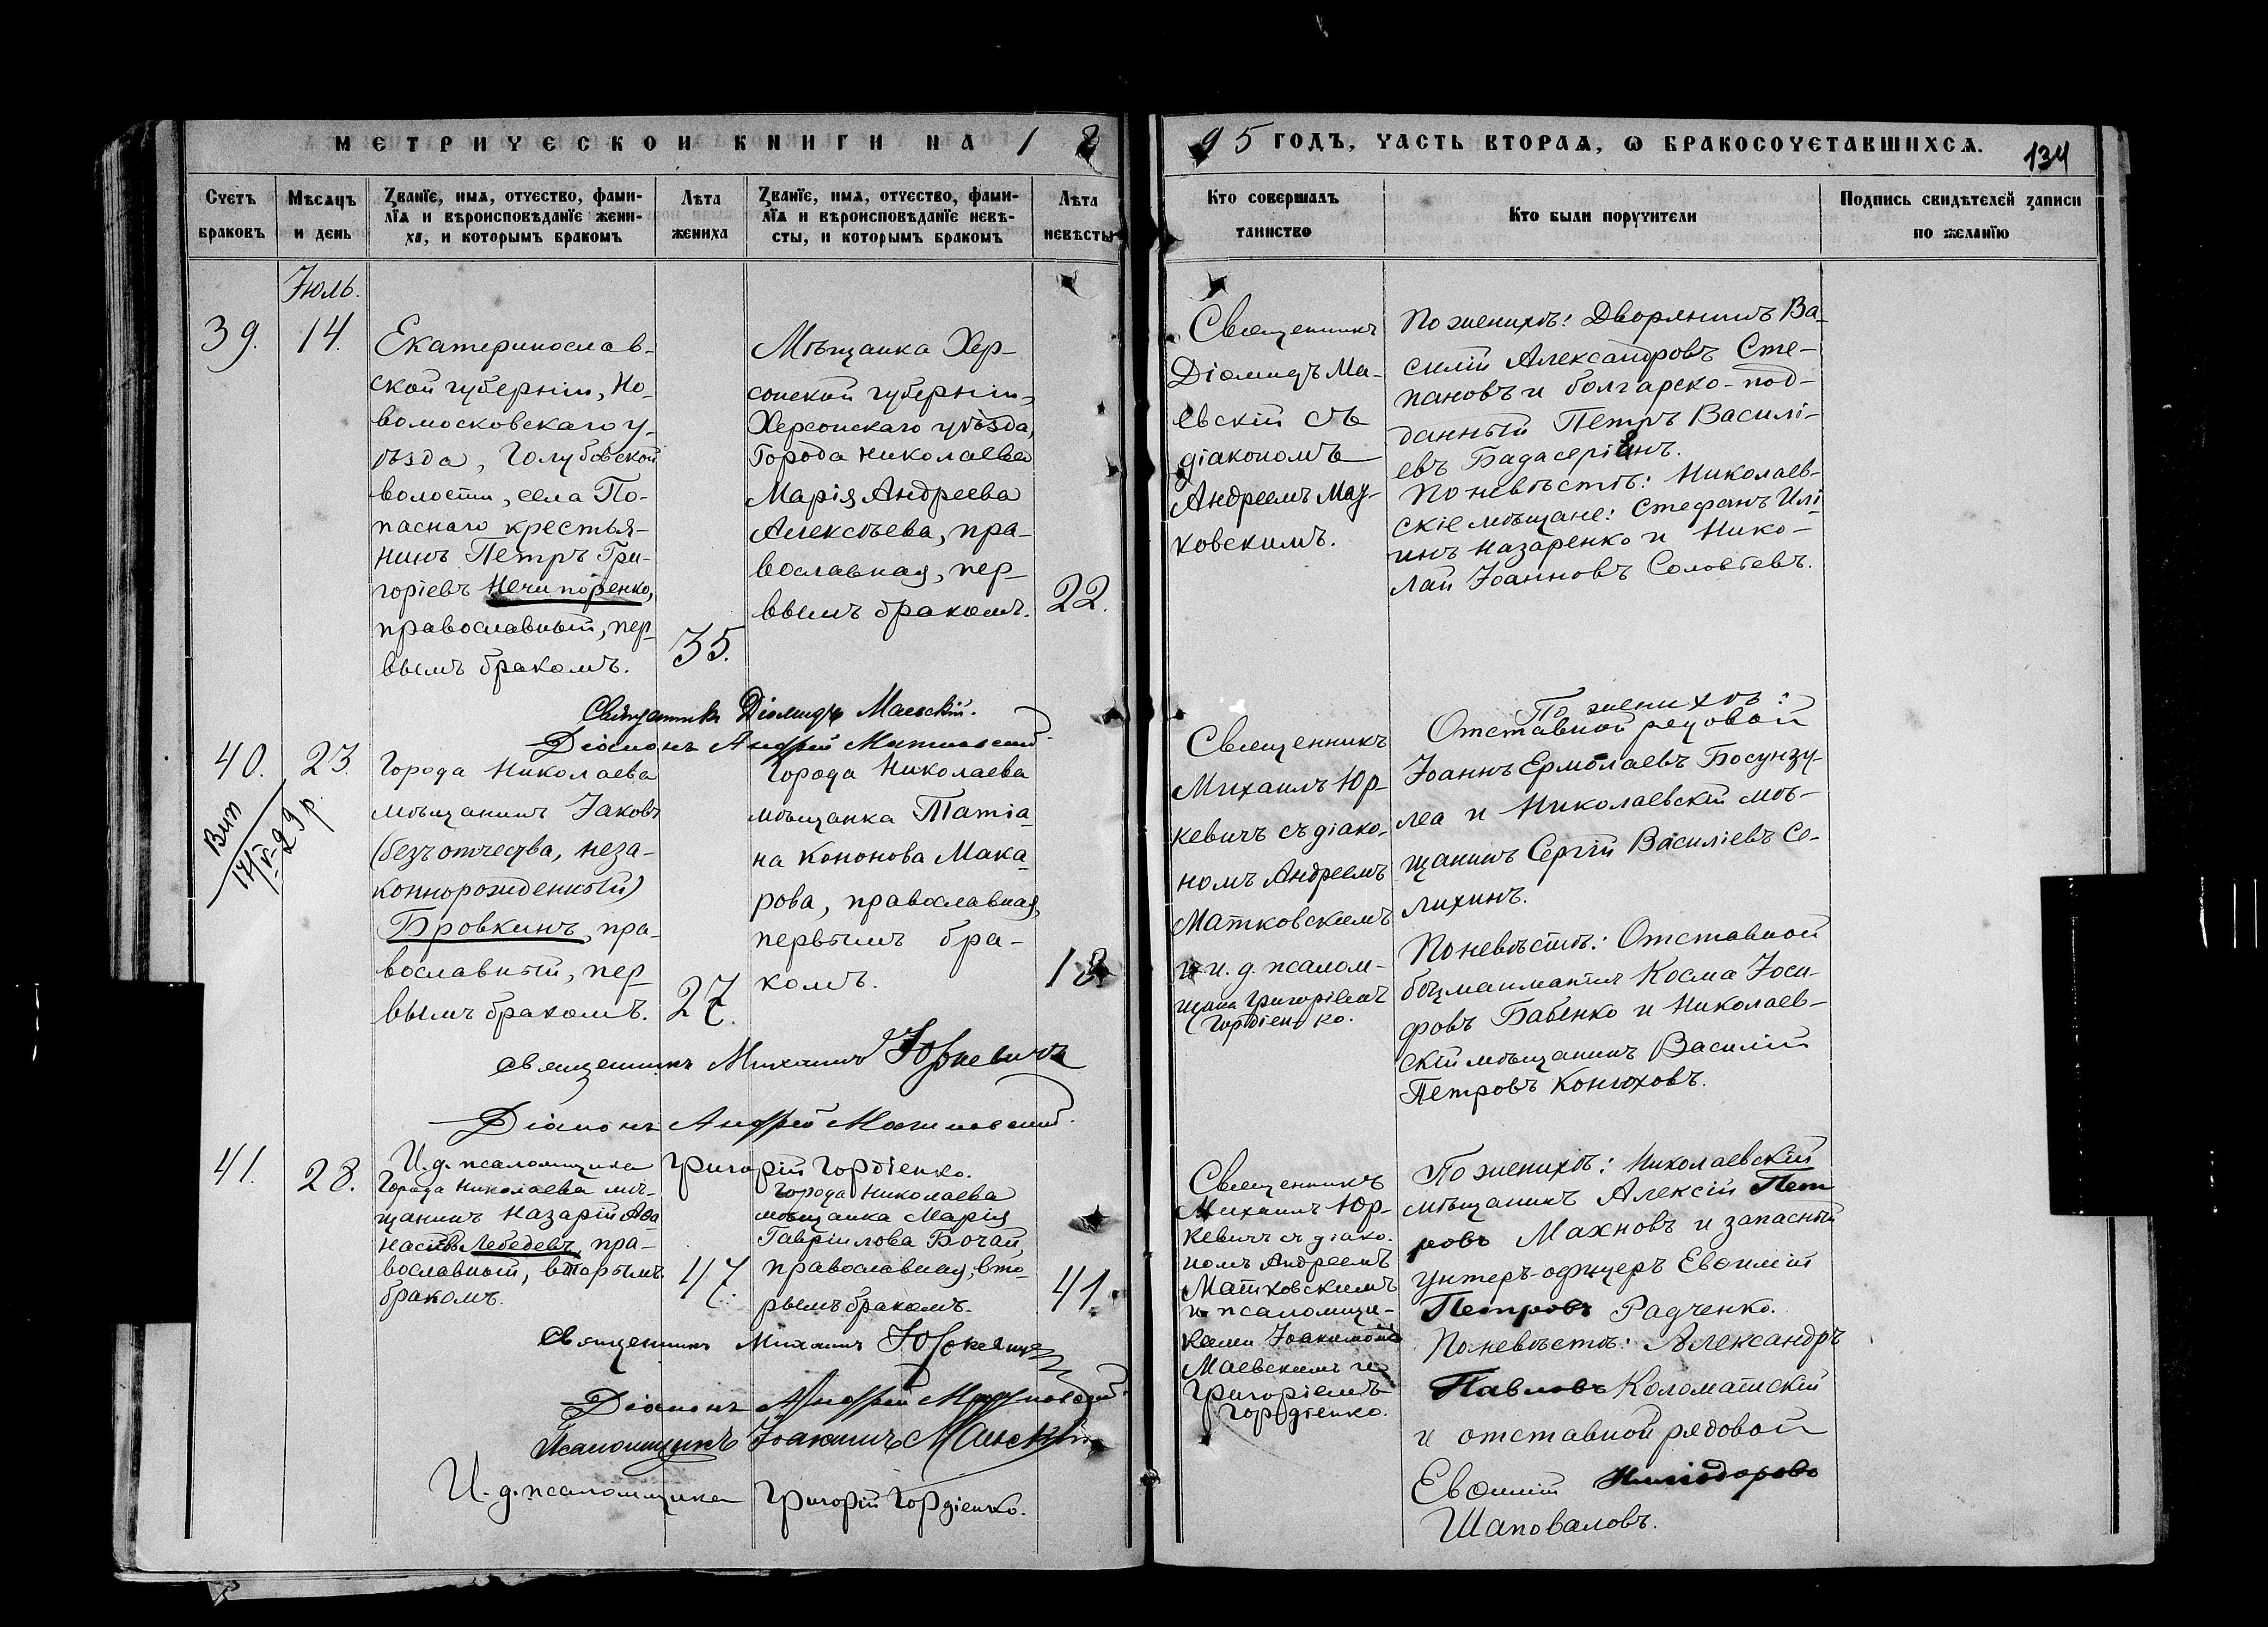 МЕТРИЧЕСКОЙ КНИГИ НА 18
95 ГОДЪ, ЧАСТЬ ВТОРАЯ, Ѡ БРАКОСОЧЕТАВШИХСЯ.
134
Счетъ браковъ
Мѣсяцъ и день
Званїе, имя, отчество, фами-
лїя и вѣроисповѣданїе жени-
ха, и которымъ бракомъ
Лѣта жениха
Званїе, имя, отчество, фами-
лїя и вѣроисповѣданїе невѣ-
сты, и которымъ бракомъ
Лѣта невѣсты
Кто совершалъ таинство
Кто были поручители
Подпись свидѣтелей записи
по желанїю
Іюль.
39.
14.
Екатеринослав-
ской губерніи, Но-
вомосковскаго у-
ѣзда, Голубовской
волости, села По-
паснаго крестья-
нинъ Петръ Гри-
горіевъ Нечипоренко,
православный, пер-
вымъ бракомъ.
35.
Мѣщанка Хер-
сонской губерніи,
Херсонскаго уѣзда,
Города Николаева
Марія Андреева
Алексѣева, пра-
вославная, пер-
вымъ бракомъ.
22.
Священникъ
Діомидъ Ма-
евскій съ
діакономъ
Андреемъ Мат-
ковскимъ.
По женихѣ: Дворянинъ Ва-
силій Александровъ Сте-
пановъ и болгарско-под-
данный Петръ Василі-
евъ Бадасеріанъ.
По невѣстѣ: Николаев-
скіе мѣщане: Стефанъ Илі-
инъ Назаренко и Нико-
лай Іоанновъ Соловьевъ.
Священникъ Діомидъ Маевскій.
Діаконъ Андрей Матковский.
40.
23.
Вип
17/V-29 р
Города Николаева
мѣщанинъ Іаковъ
(безъ отчества, неза-
коннорожденный)
Бровкинъ, пра-
вославный, пер-
вымъ бракомъ.
27.
Города Николаева
мѣщанка Татіа-
на Кононова Мака-
рова, православная,
первымъ бра-
комъ.
18
Священникъ
Михаилъ Юр-
кевичъ съ діако-
номъ Андреемъ
Матковскимъ
и и. д. псалом-
щика Григоріемъ
Гордіенко.
По женихѣ:
Отставной рядовой
Іоаннъ Ермолаевъ Босунзу-
леа и Николаевскій мѣ-
щанинъ Сергій Василіевъ Се-
лихинъ.
По невѣстѣ: Отставной
боцманматъ Косма Іоси-
фовъ Бабенко и Николаев-
скій мѣщанинъ Василій
Петровъ Конюховъ.
священникъ Михаилъ Юркевичъ
Діаконъ Андрей Матковский.
И. д. псаломщика Григорій Гордіенко.
41.
28.
Города Николаева мѣ-
щанинъ Назарій Аѳа
насіевъ Лебедевъ, пра-
вославный, вторымъ
бракомъ.
47.
Города Николаева
мѣщанка Марія
Гавріилова Бочай,
православная, вто-
рымъ бракомъ.
41.
Священникъ
Михаилъ Юр-
кевичъ съ діако-
номъ Андреемъ
Матковскимъ
и псаломщи-
ками Іоакимомъ
Маевскимъ и
Григоріемъ
Гордіенко.
По женихѣ: Николаевскій
мѣщанинъ Алексій Пет
ровъ Махновъ и запасный
унтеръ-офицеръ Евѳимій
Петровъ Радченко.
По невѣстѣ: Александръ
Павловъ Коломатскій
и отставной рядовой
Евѳимій
Шаповаловъ.
Священникъ Михаилъ Юркевичъ
Діаконъ Андрей Матковский.
Псаломщикъ Іоакимъ Маевскій
И. д. псаломщика Григорій Гордіенко.